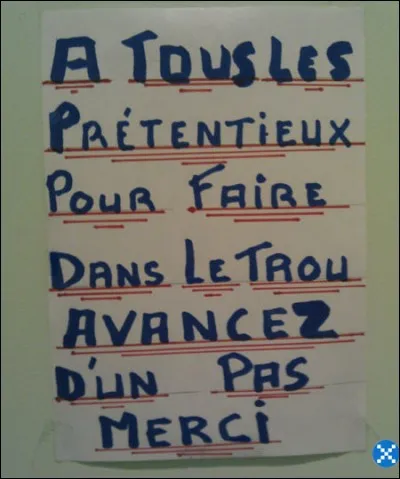 A TOUS LES
PRÉTENTIEUX
POUR FAIRE
DANS LE TROU
AVANCEZ
D'UN PAS
MERCI